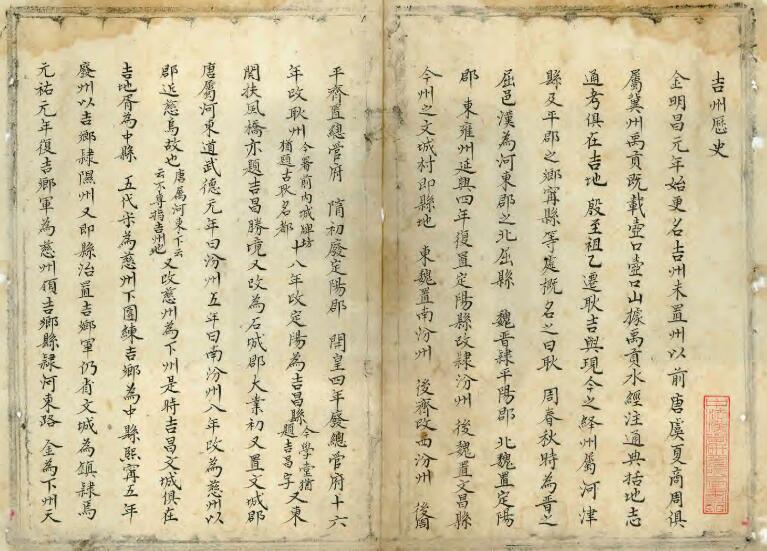 吉州歷史
金明昌元年始更名吉州未置州以前唐虞夏商周俱
屬冀州禹貢既載壺口壺口山據禹貢水經注通典括地志
通考俱在吉地 殷王祖乙遷耿吉與現今之絳州屬河津
縣及平郡之鄉寧縣等處概名之曰耿 周春秋時為晋之
屈邑漢為河東郡之北屈縣 魏晋隸平陽郡 北魏置定陽
郡 東雍州延興四年復置定陽縣改隸汾州 後魏置文昌縣
今州之文城村即縣地 東魏置南汾州 後齊改西汾州 後周
平齊置總管府 隋初廢定陽郡 開皇四年廢總管府十六
年改耿州今署前內城牌坊猶題古耿名都十八年改定陽為吉昌縣今學堂猶題吉昌字又東
関扶風橋亦題吉昌勝境又改為石城郡大業初又置文城郡
唐屬河東道武德元年曰汾州五年曰南汾州八年改為慈州以
郡近慈烏故也唐屬河東下云云不專指吉州地又改慈州為下州是時吉昌文城俱在
吉地胥為中縣 五代宋為慈州下團練吉鄉為中縣熙寧五年
廢州以吉鄉隸隰州又即縣治置吉鄉軍仍省文城為鎮隸焉
元祐元年復吉鄉軍為慈州領吉鄉縣隸河東路 金為下州天